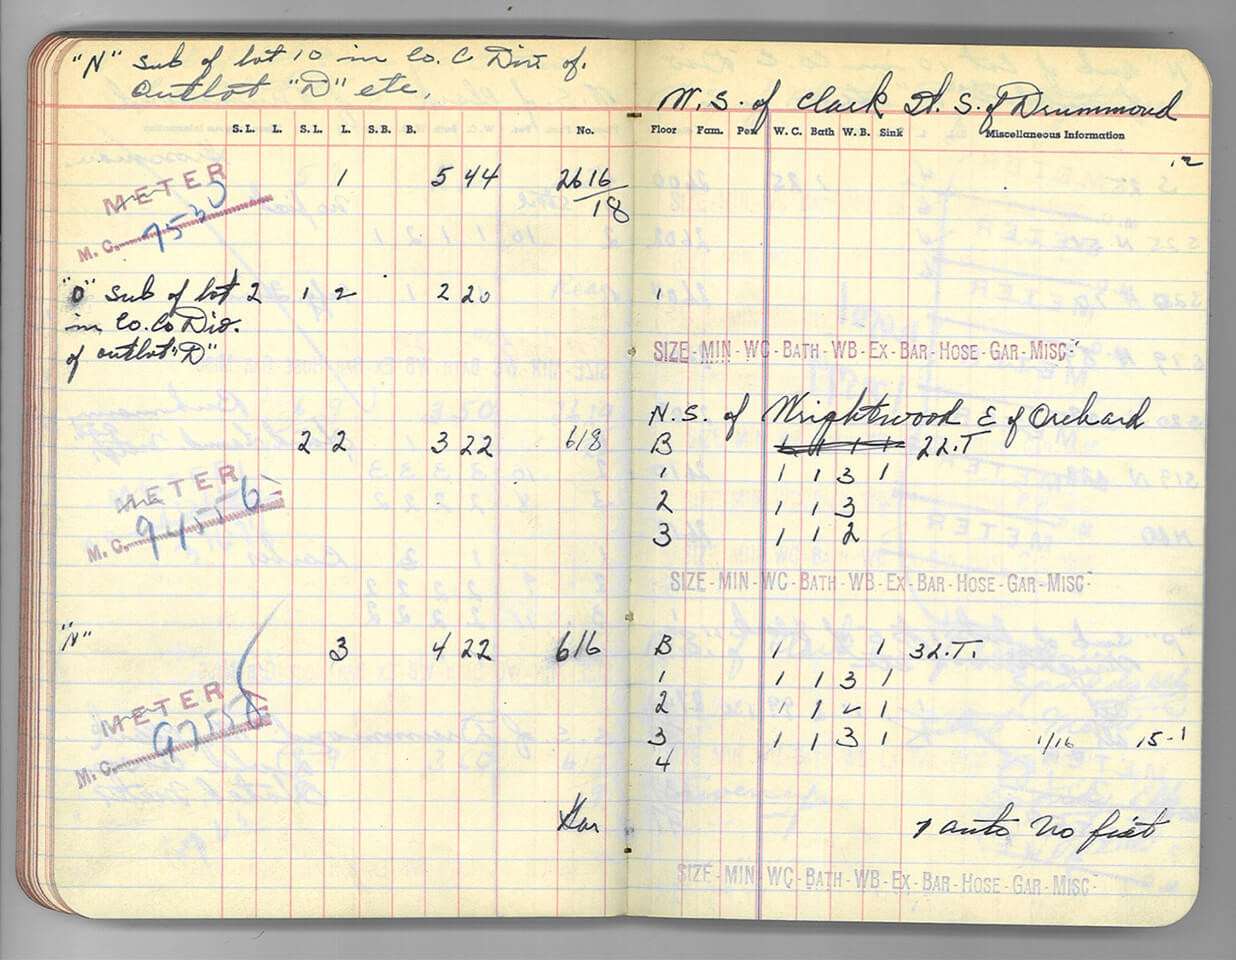 "N" Sub of lot 10 in Co. C Divi of.
Outlot "D" etc.
W. S. of Clark St. S. of Drummond
S. L. L. S. L. L. S. B. B. No. Floor Fam. Per. W. C. Bath W. B. Sink Miscellaneous Information
12
METER 1 5 44 2616/18
M. C. 9530
"O" Sub of lot 2 1 2 2 20 1
in Co. Co Div.
of outlot "D"
SIZE - MIN - WC - BATH - WB - EX - BAR - HOSE - GAR - MISC -
N. S. of Wrightwood E of Orchard
2 2 3 22 618 B 1 1 1 1 22.T
METER 1 1 1 3 1
M. C. 94556 2 1 1 3
3 1 1 2
SIZE - MIN - WC - BATH - WB - EX - BAR - HOSE - GAR - MISC -
"N" 3 4 22 616 B 1 1 32.T.
1 1 1 3 1
METER 2 1 1 2 1
M. C. 97558 3 1 1 3 1 1/16 15-1
4
Gar 1 auto No fixt
SIZE - MIN - WC - BATH - WB - EX - BAR - HOSE - GAR - MISC -